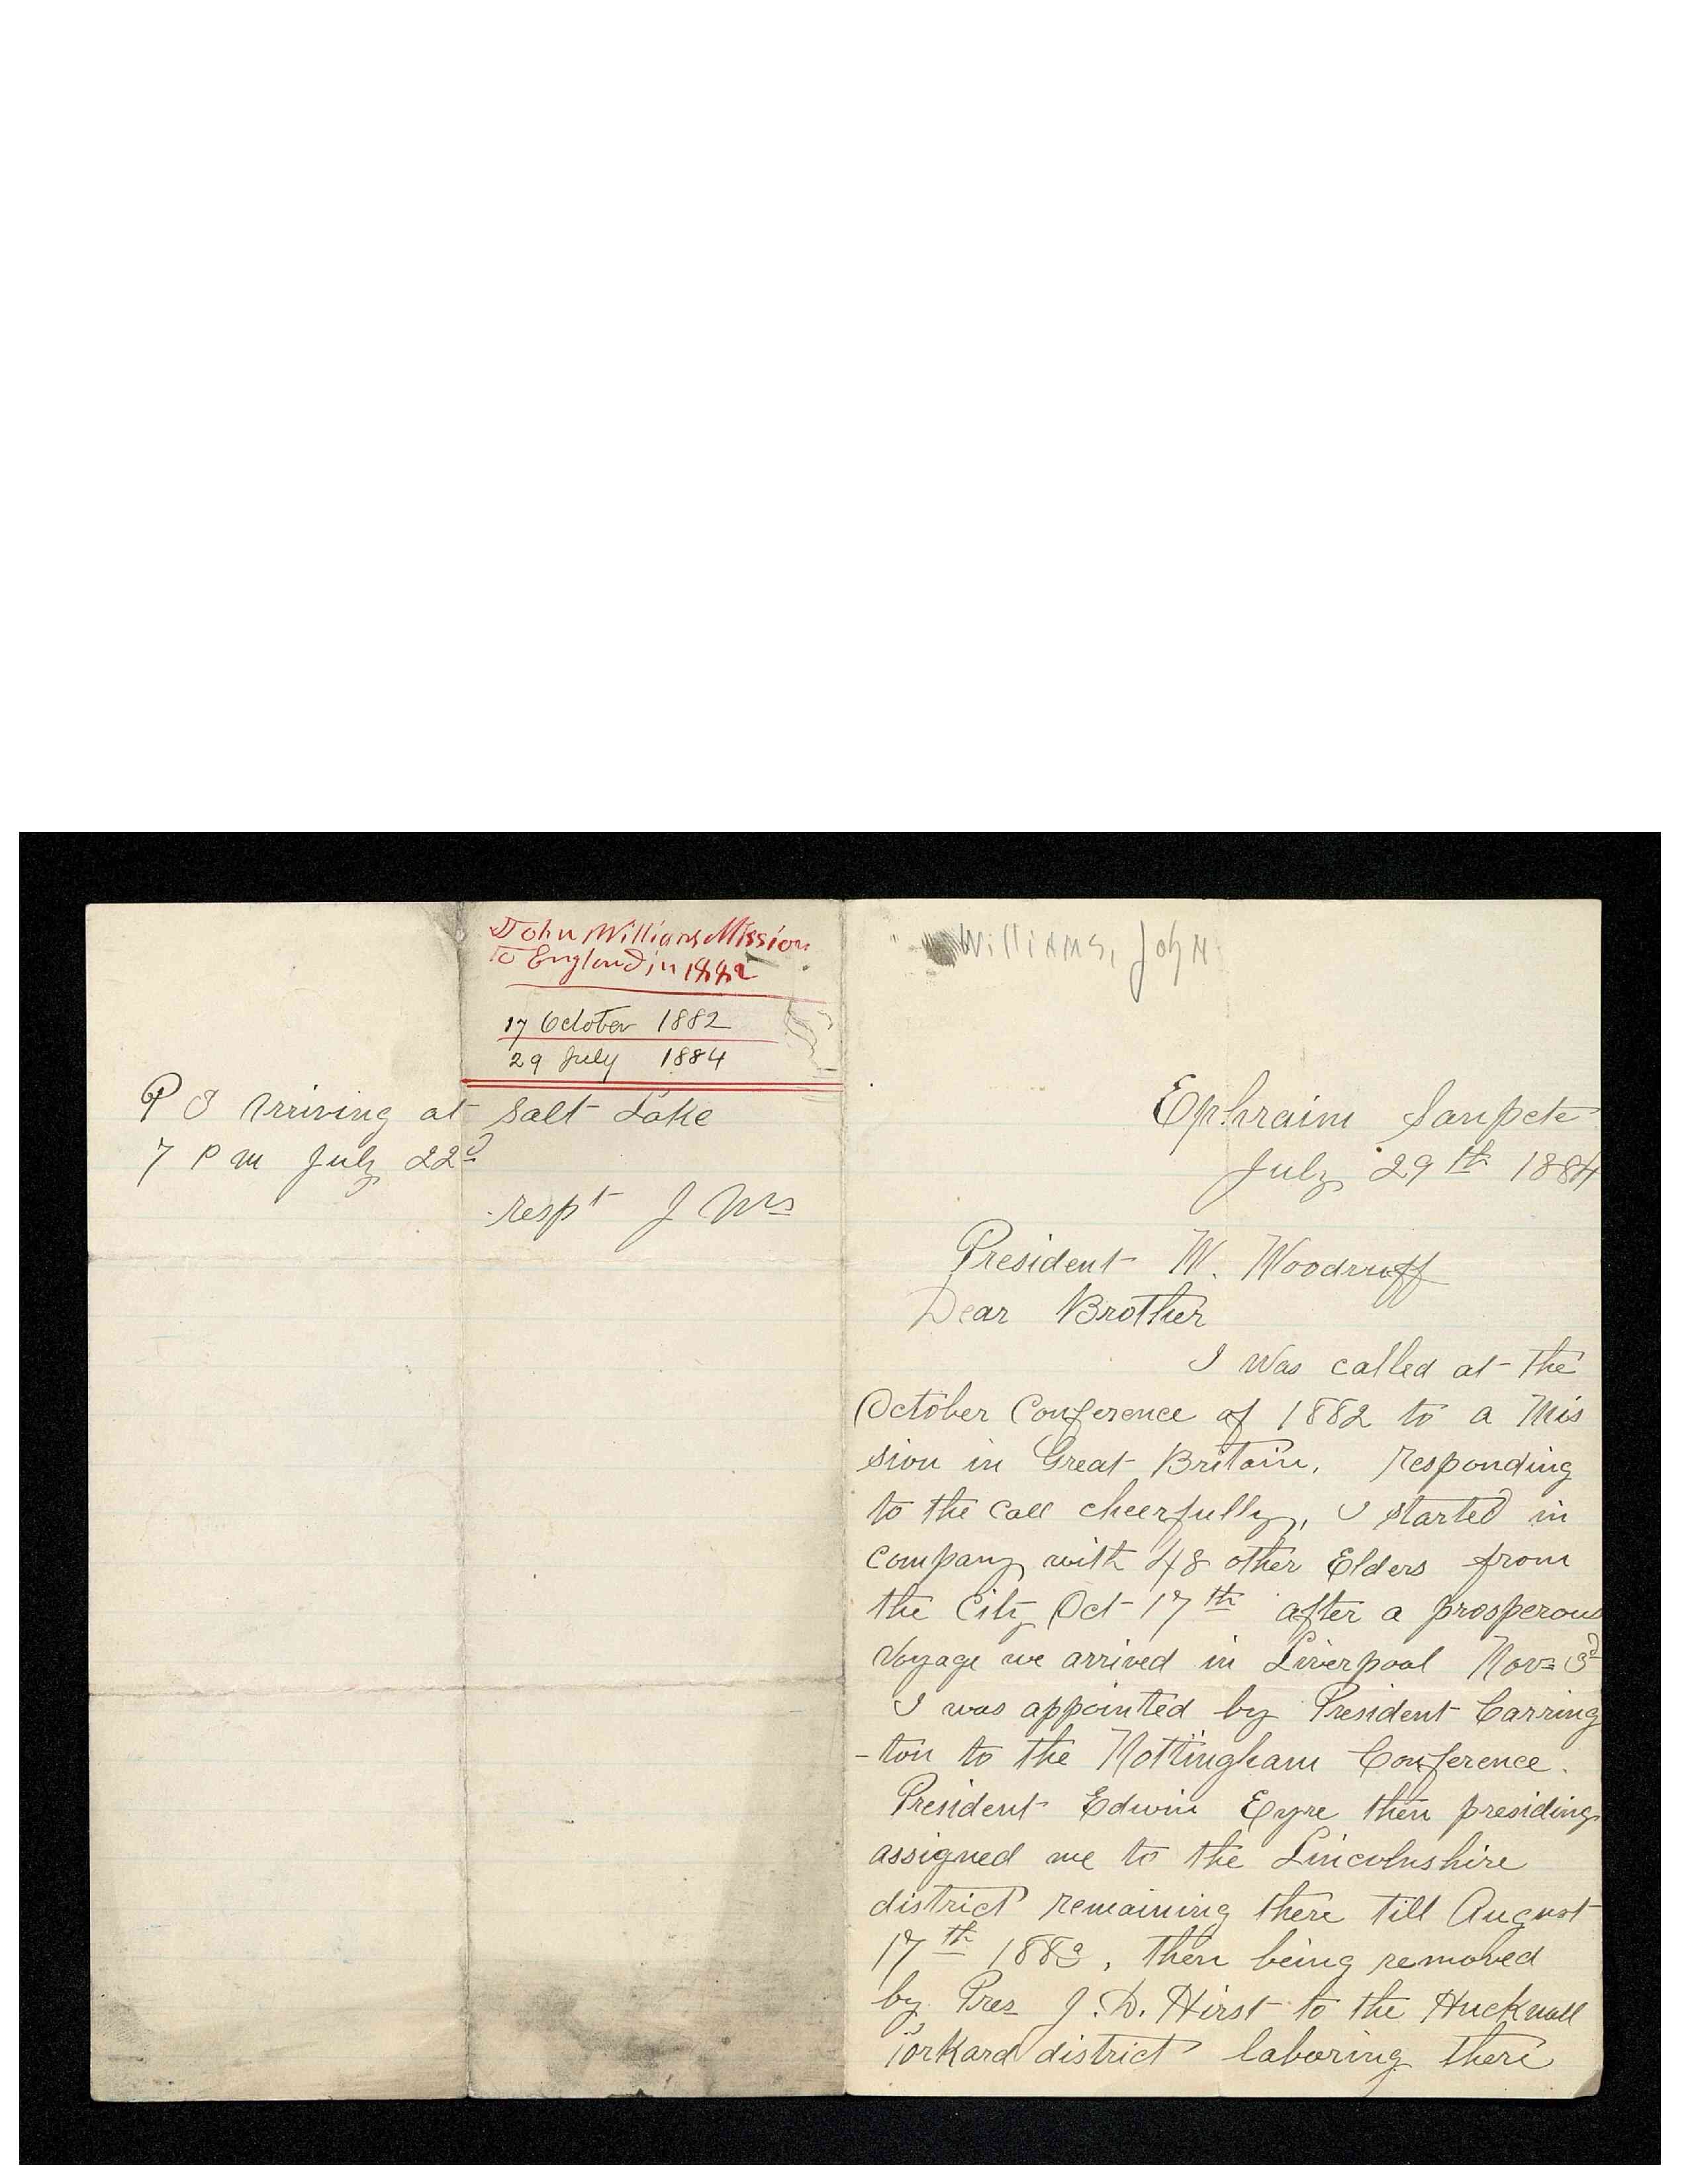 John Williams Mission
To England in 1882
17 October 1882
29 July 1884
P S Arriving at Salt Lake
7 P m July 22d
respt J Wms
Williams, John
Ephraim Sanpete
July 29th 1884
President W. Woodruff
Dear Brother
I Was called at the
October Conference of 1882 to a Mis
sion in Great Britain, responding
to the call cheerfully, I started in
company with 48 other Elders from
the City Oct 17th after a prosperous
Voyage we arrived in Liverpool Nov= 3d
I was appointed by President Carring
-ton to the Nottingham Conference.
President Edwin Eyre then presiding
assigned me to the Lincolnshire
district remaining there till August
17th 1883, then being removed
by Pres J. D. Hirst to the Hucknall
Torkard district laboring there